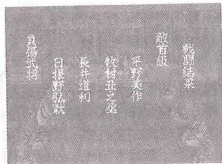 戦闘結果
敵首級
平野美作
牧村丑之丞
長井道利
日根野弘就
負傷武将